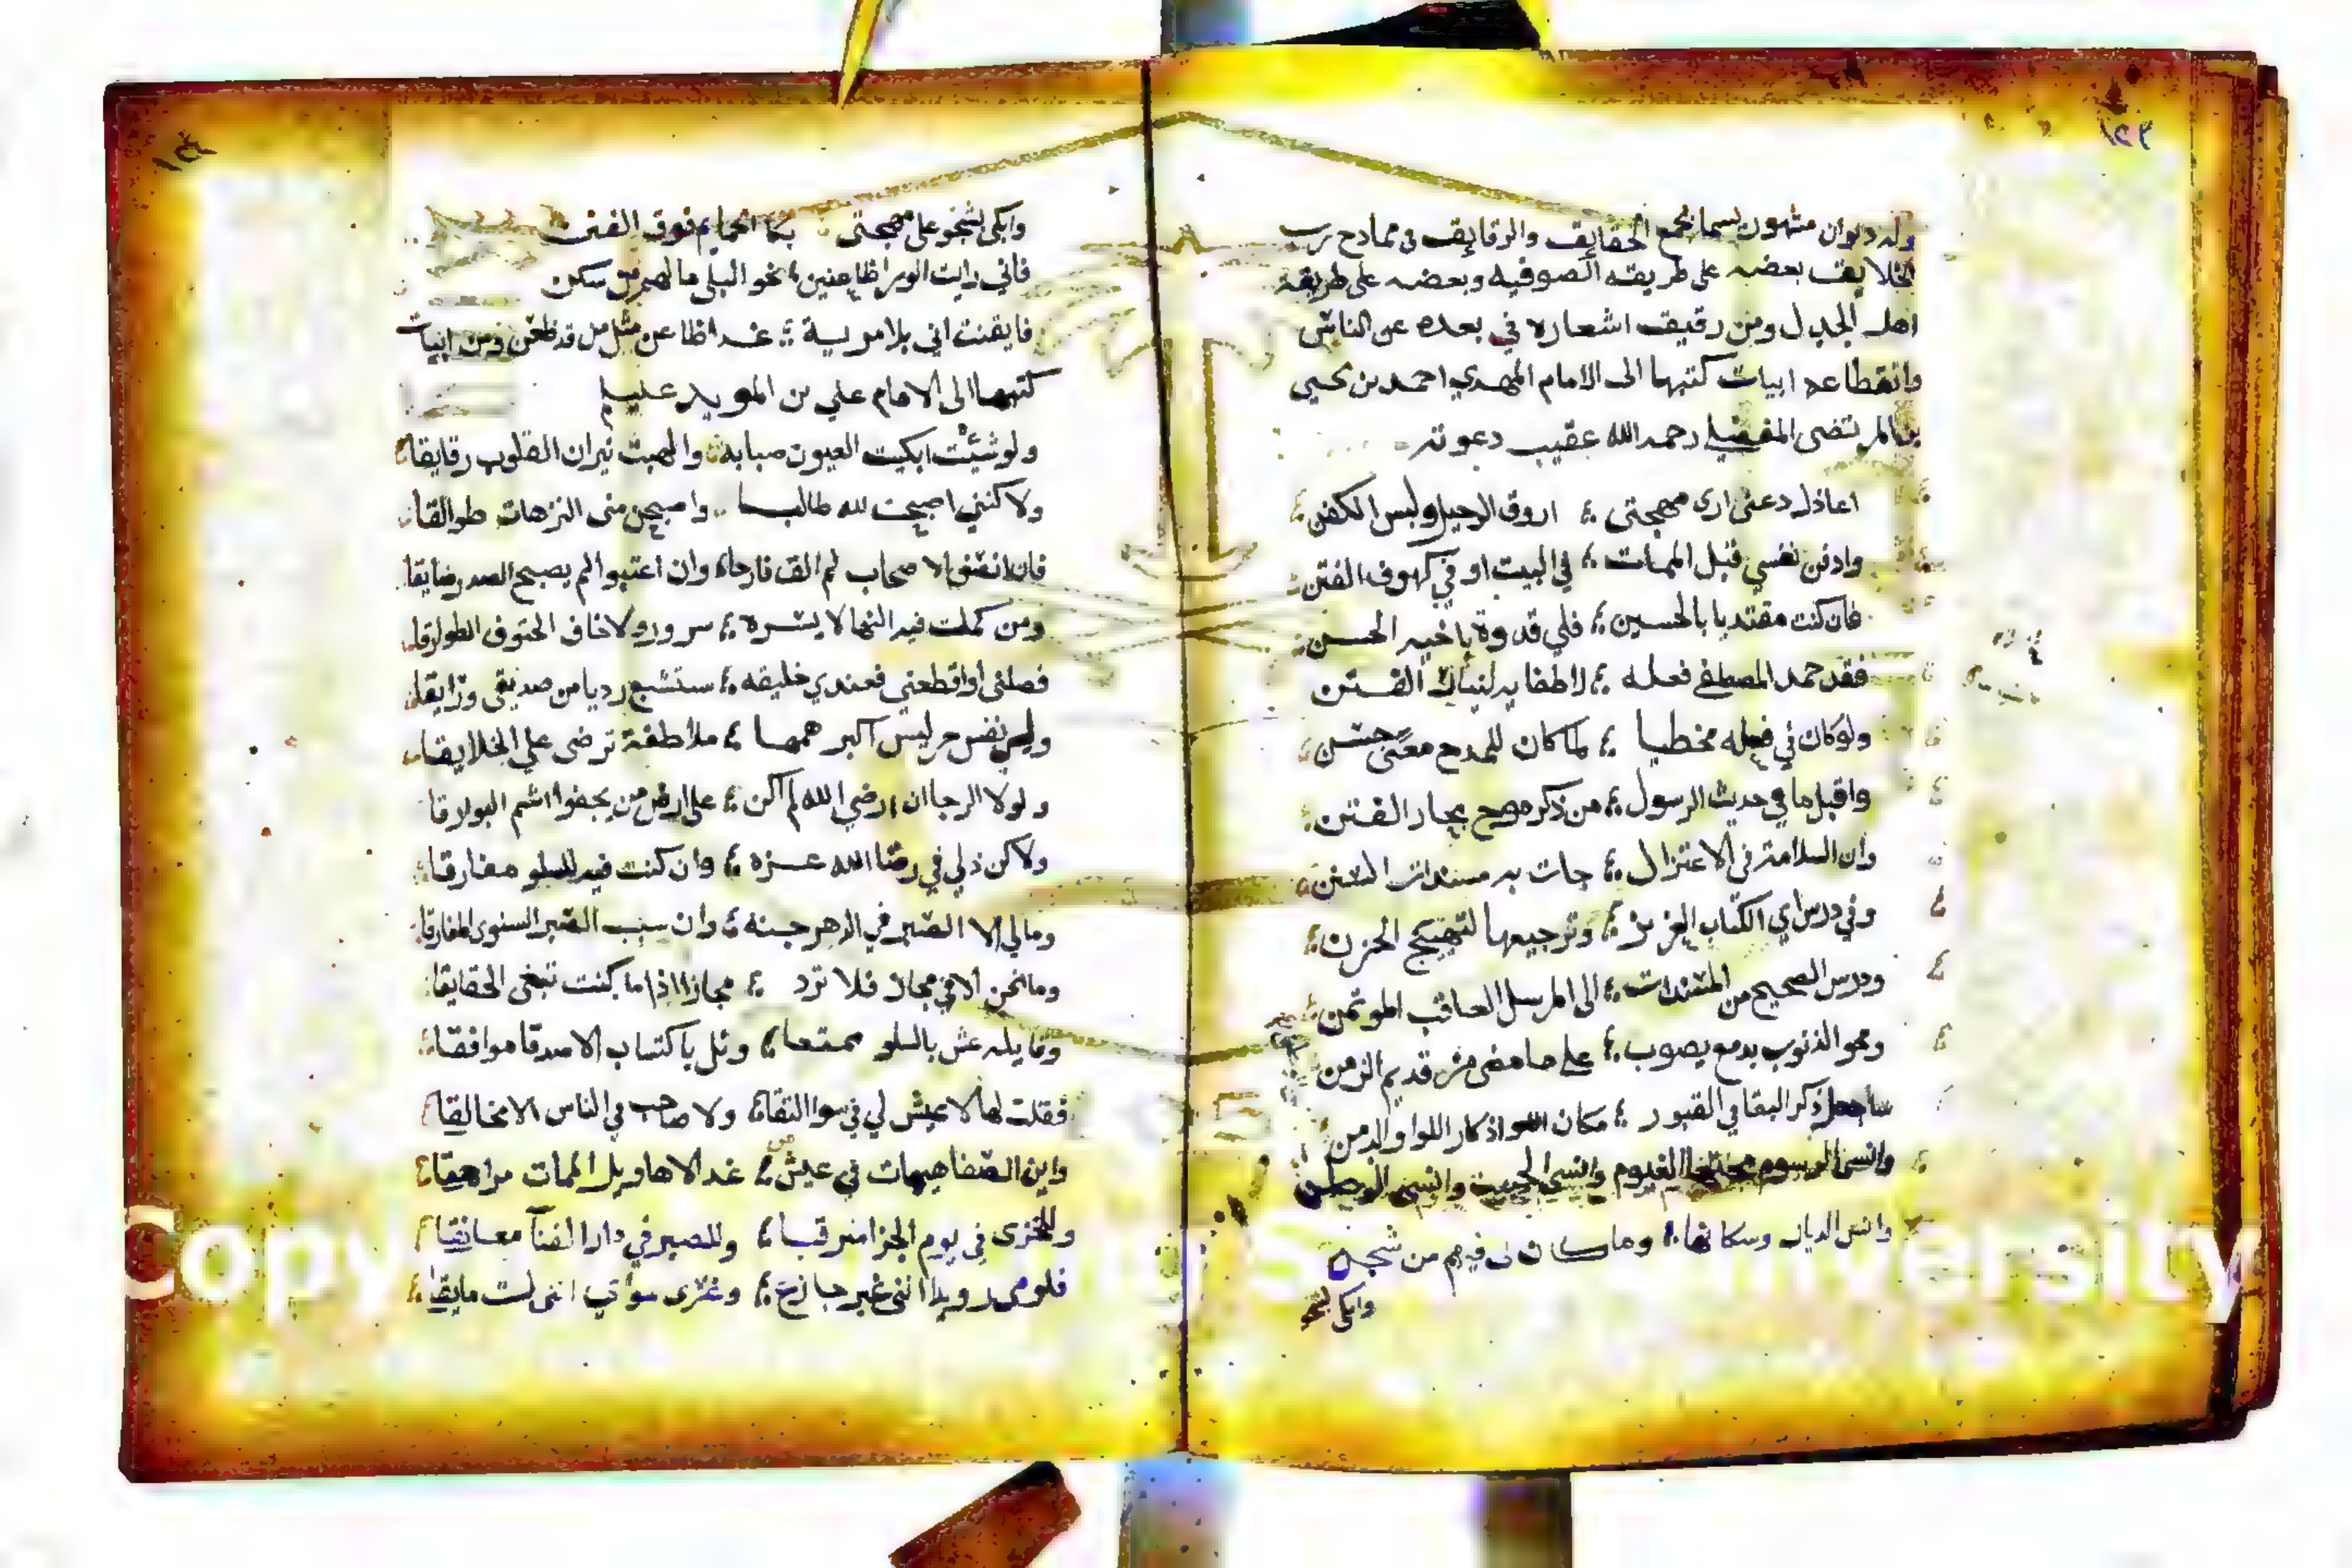 وله ديوان مشهور يسما مجمع الحقايق والرقايق في ممادح رب
الخلايق بعضه على طريقه الصوفيه وبعضه على طريقة
اهل الجدل ومن رقيق اشعاره في بعده عن الناس
وانقطاعه ابيات كتبها الى الامام المهدي احمد بن يحيى
بن المرتضى المفضلي رحمه الله عقيب دعوته
اعاذل دعني ارى مهجتي اروق الرحيل ولبس الكفن
وادفن نفسي قبل الممات في البيت او في كهوف الفتن
فان كنت مقتديا بالحسين فلي قدوة باخيه الحسن
فقد حمد المصطفى فعله لاطفايه لنيات الفتن
ولو كان في فعله مخطيا لما كان للمدح معنى حسن
واقبل ما في حديث الرسول من ذكر موج بحار الفتن
وان السلامة في الاعتزال جات به مسندات السنن
وفي درس اي الكتاب العزيز وترجيعها لتهييج الحزن
ودرس الصحيح من المسندات الى المرسل العاقب الموتمن
ومحو الذنوب بدمع يصوب على ما مضى من قديم الزمن
ساجعل ذكر البقا في القبور مكان اذكار اللوا والدمن
وانسى الرسوم الغيوم وانسى وانسى الوطن
وانس الديار وسكانها وما كان لي فيهم من شجن
وابكي لشجو
وابكي لشجو على مهجتي بكا الحمايم فوق الفنن
فاني رايت الورا ظاعنين نحو البلى ما لهم من سكن
فايقنت اني بلا مرية غدا ظاعن مثل من قد ظعن ومن ابيات
كتبها الى الامام علي بن المويد عليلم
ولو شئت ابكيت العيون صبابة والهبت نيران القلوب رقايقا
ولاكنني اصبحت لله طالبا واصبحن مني النزهات طوالقا
فان انصفوا الاصحاب لم الف فارحا وان اعتبوا لم يصبح الصدر ضايقا
ومن كملت فيه النها لا يسره سرور ولا خاف الحتوف الطوارقا
فصلني او اقطعني فعندي خليقه ستشبع رديا من صديقي ورايقا
ولي نفس حر ليس اكبر همها ملاطفة ترضى علي الخلايقا
ولولا الرجا ان ارضي الله لم اكن على ارض من يجفوا اشم البوارقا
ولاكن ذلي في رضا الله عزه وان كنت فيه للسلو مفارقا
ومالي الا الصبر في الدهر جنة وان سبب الصبر السنوى المفارقا
وما نحن الا في مجاز فلا ترد مجازا اذا ما كنت تبغى الحقايقا
وقايله عش بالسلو ممتعا ونل باكتساب الاصدقا موافقا
فقلت لها لا عيش لي في سوا التقا ولا صاحب في الناس الا مخالقا
واين الصفا هيهات في عيش من غدا لاهاويل الممات مراهقا
وللخزى في يوم الجزا مترقبا وللصبر في دار الفنآ معانقا
فلومي رويدا انني غير جازع وغرى سواي انني لست مايقا